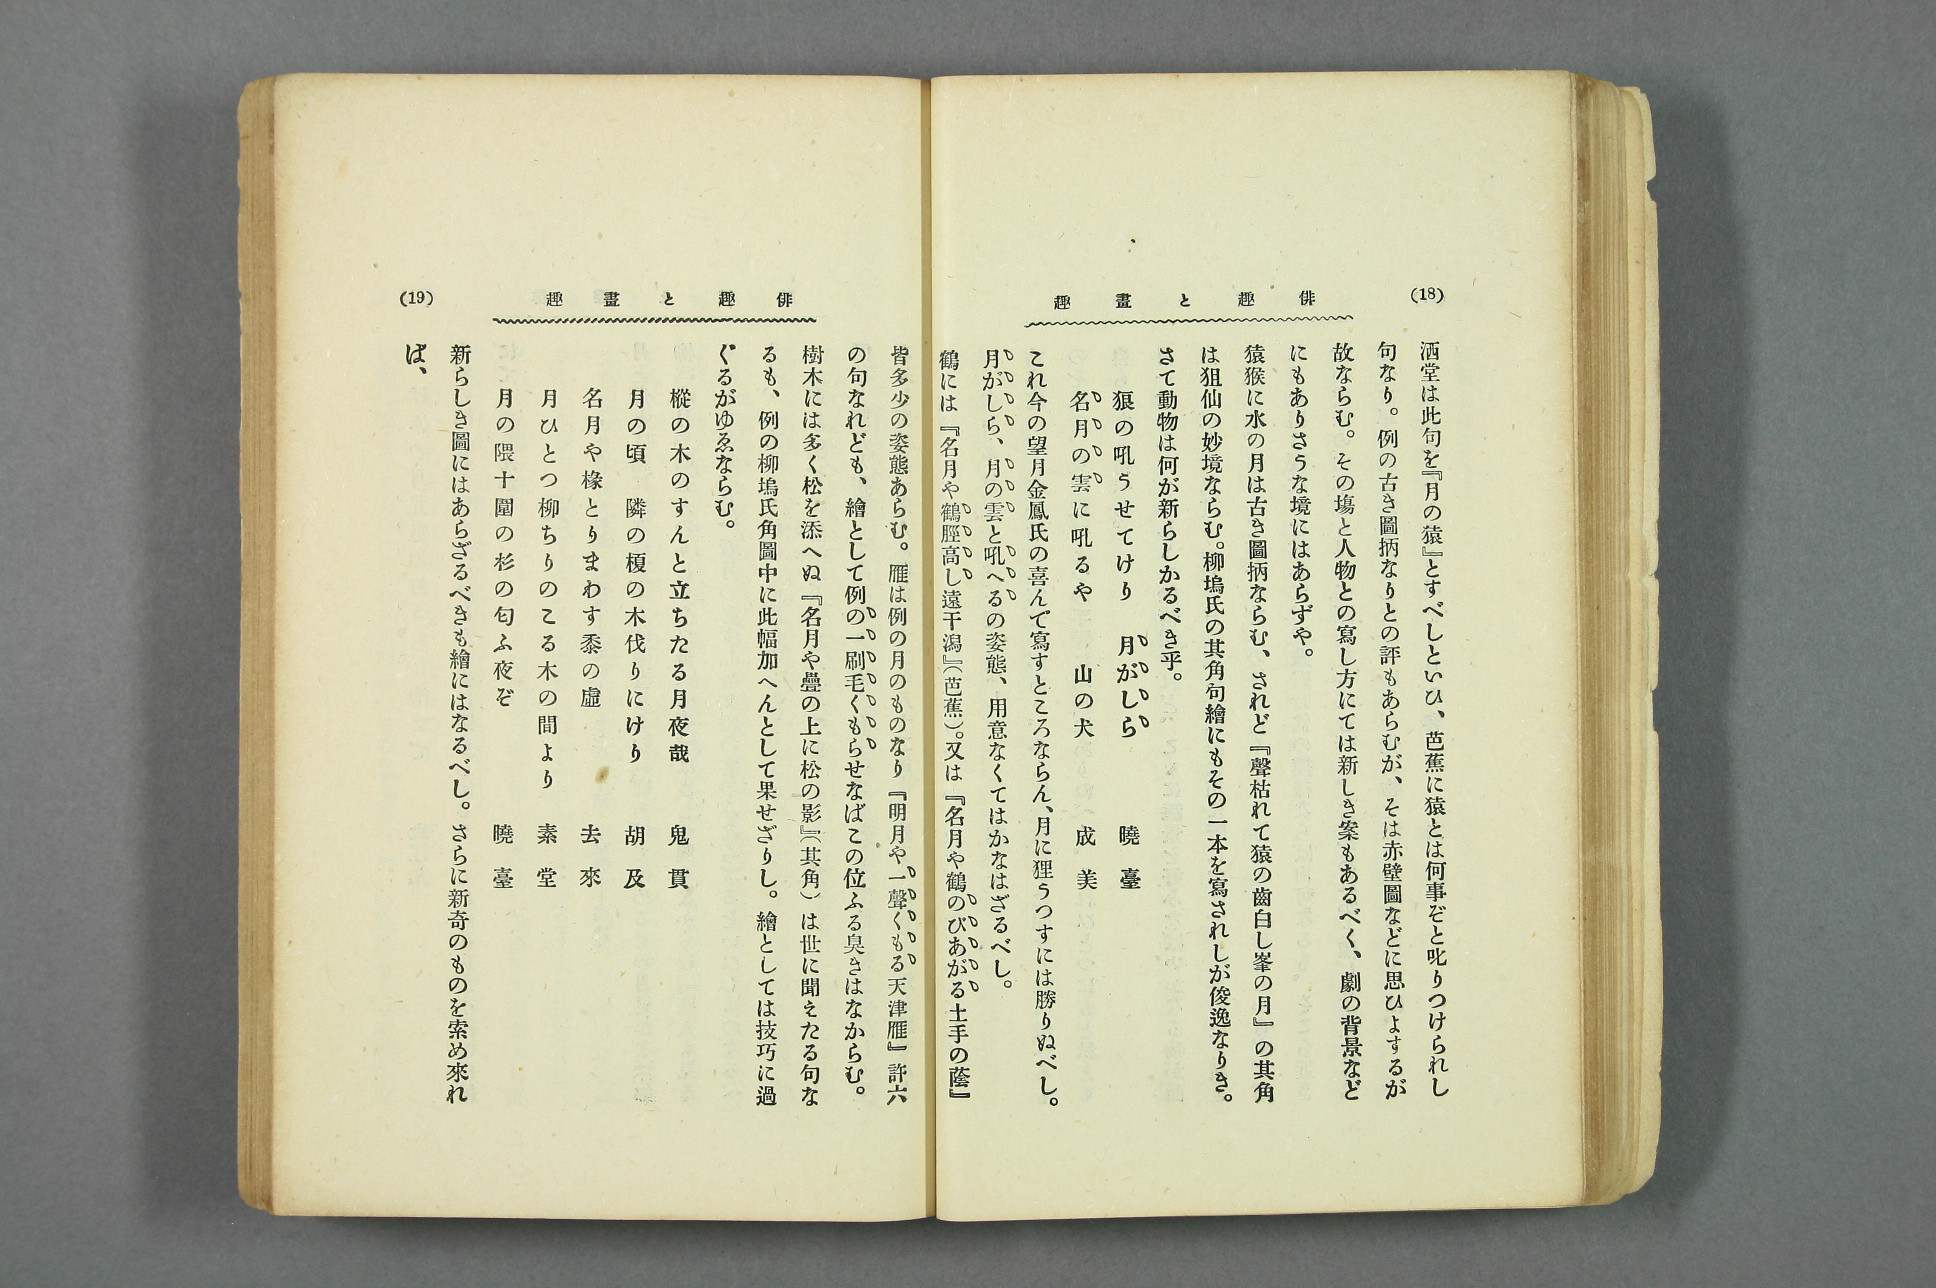 (18)
俳趣と畫趣
洒堂は此句を『月の猿』とすべしといひ、芭蕉に猿とは何事ぞと叱りつけられし
句なり。例の古き圖柄なりとの評もあらむが、そは赤壁圖などに思ひよするが
故ならむ。その塲と人物との寫し方にては新しき案もあるべく、劇の背景など
にもありさうな境にはあらずや。
猿猴に水の月は古き圖柄ならむ、されど『聲枯れて猿の齒白し峯の月』の其角
は狙仙の妙境ならむ。柳塢氏の其角句繪にもその一本を寫されしが俊逸なりき。
さて動物は何が新らしかるべき乎。
狼の吼うせてけり月がしら　曉臺
名月の雲に吼るや山の犬　成美
これ今の望月金鳳氏の喜んで寫すところならん、月に狸うつすには勝りぬべし。
月がしら、月の雲と吼へるの姿態、用意なくてはかなはざるべし。
鶴には『名月や鶴脛高し遠干潟』（芭蕉）。又は『名月や鶴のびあがる土手の蔭』
(19)
俳趣と畫趣
皆多少の姿態あらむ。雁は例の月のものなり『明月や一聲くもる天津雁』許六
の句なれども、繪として例の一刷毛くもらせなばこの位ふる臭きはなからむ。
樹木には多く松を添へぬ『名月や疊の上に松の影』（其角）は世に聞えたる句な
るも、例の柳塢氏角圖中に此幅加へんとして果せざりし。繪としては技巧に過
ぐるがゆゑならむ。
樅の木のすんと立ちたる月夜哉　鬼貫
月の頃　隣の榎の木伐りにけり　胡及
名月や椽とりまわす黍の虛　去來
月ひとつ柳ちりのこる木の間より　素堂
月の隈十圍の杉の匂ふ夜ぞ　曉臺
新らしき圖にはあらざるべきも繪にはなるべし。さらに新奇のものを索め來れ
ば、